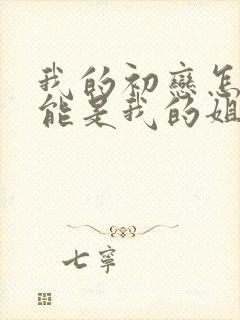 我的初戀怎
能是我的姐
七寧